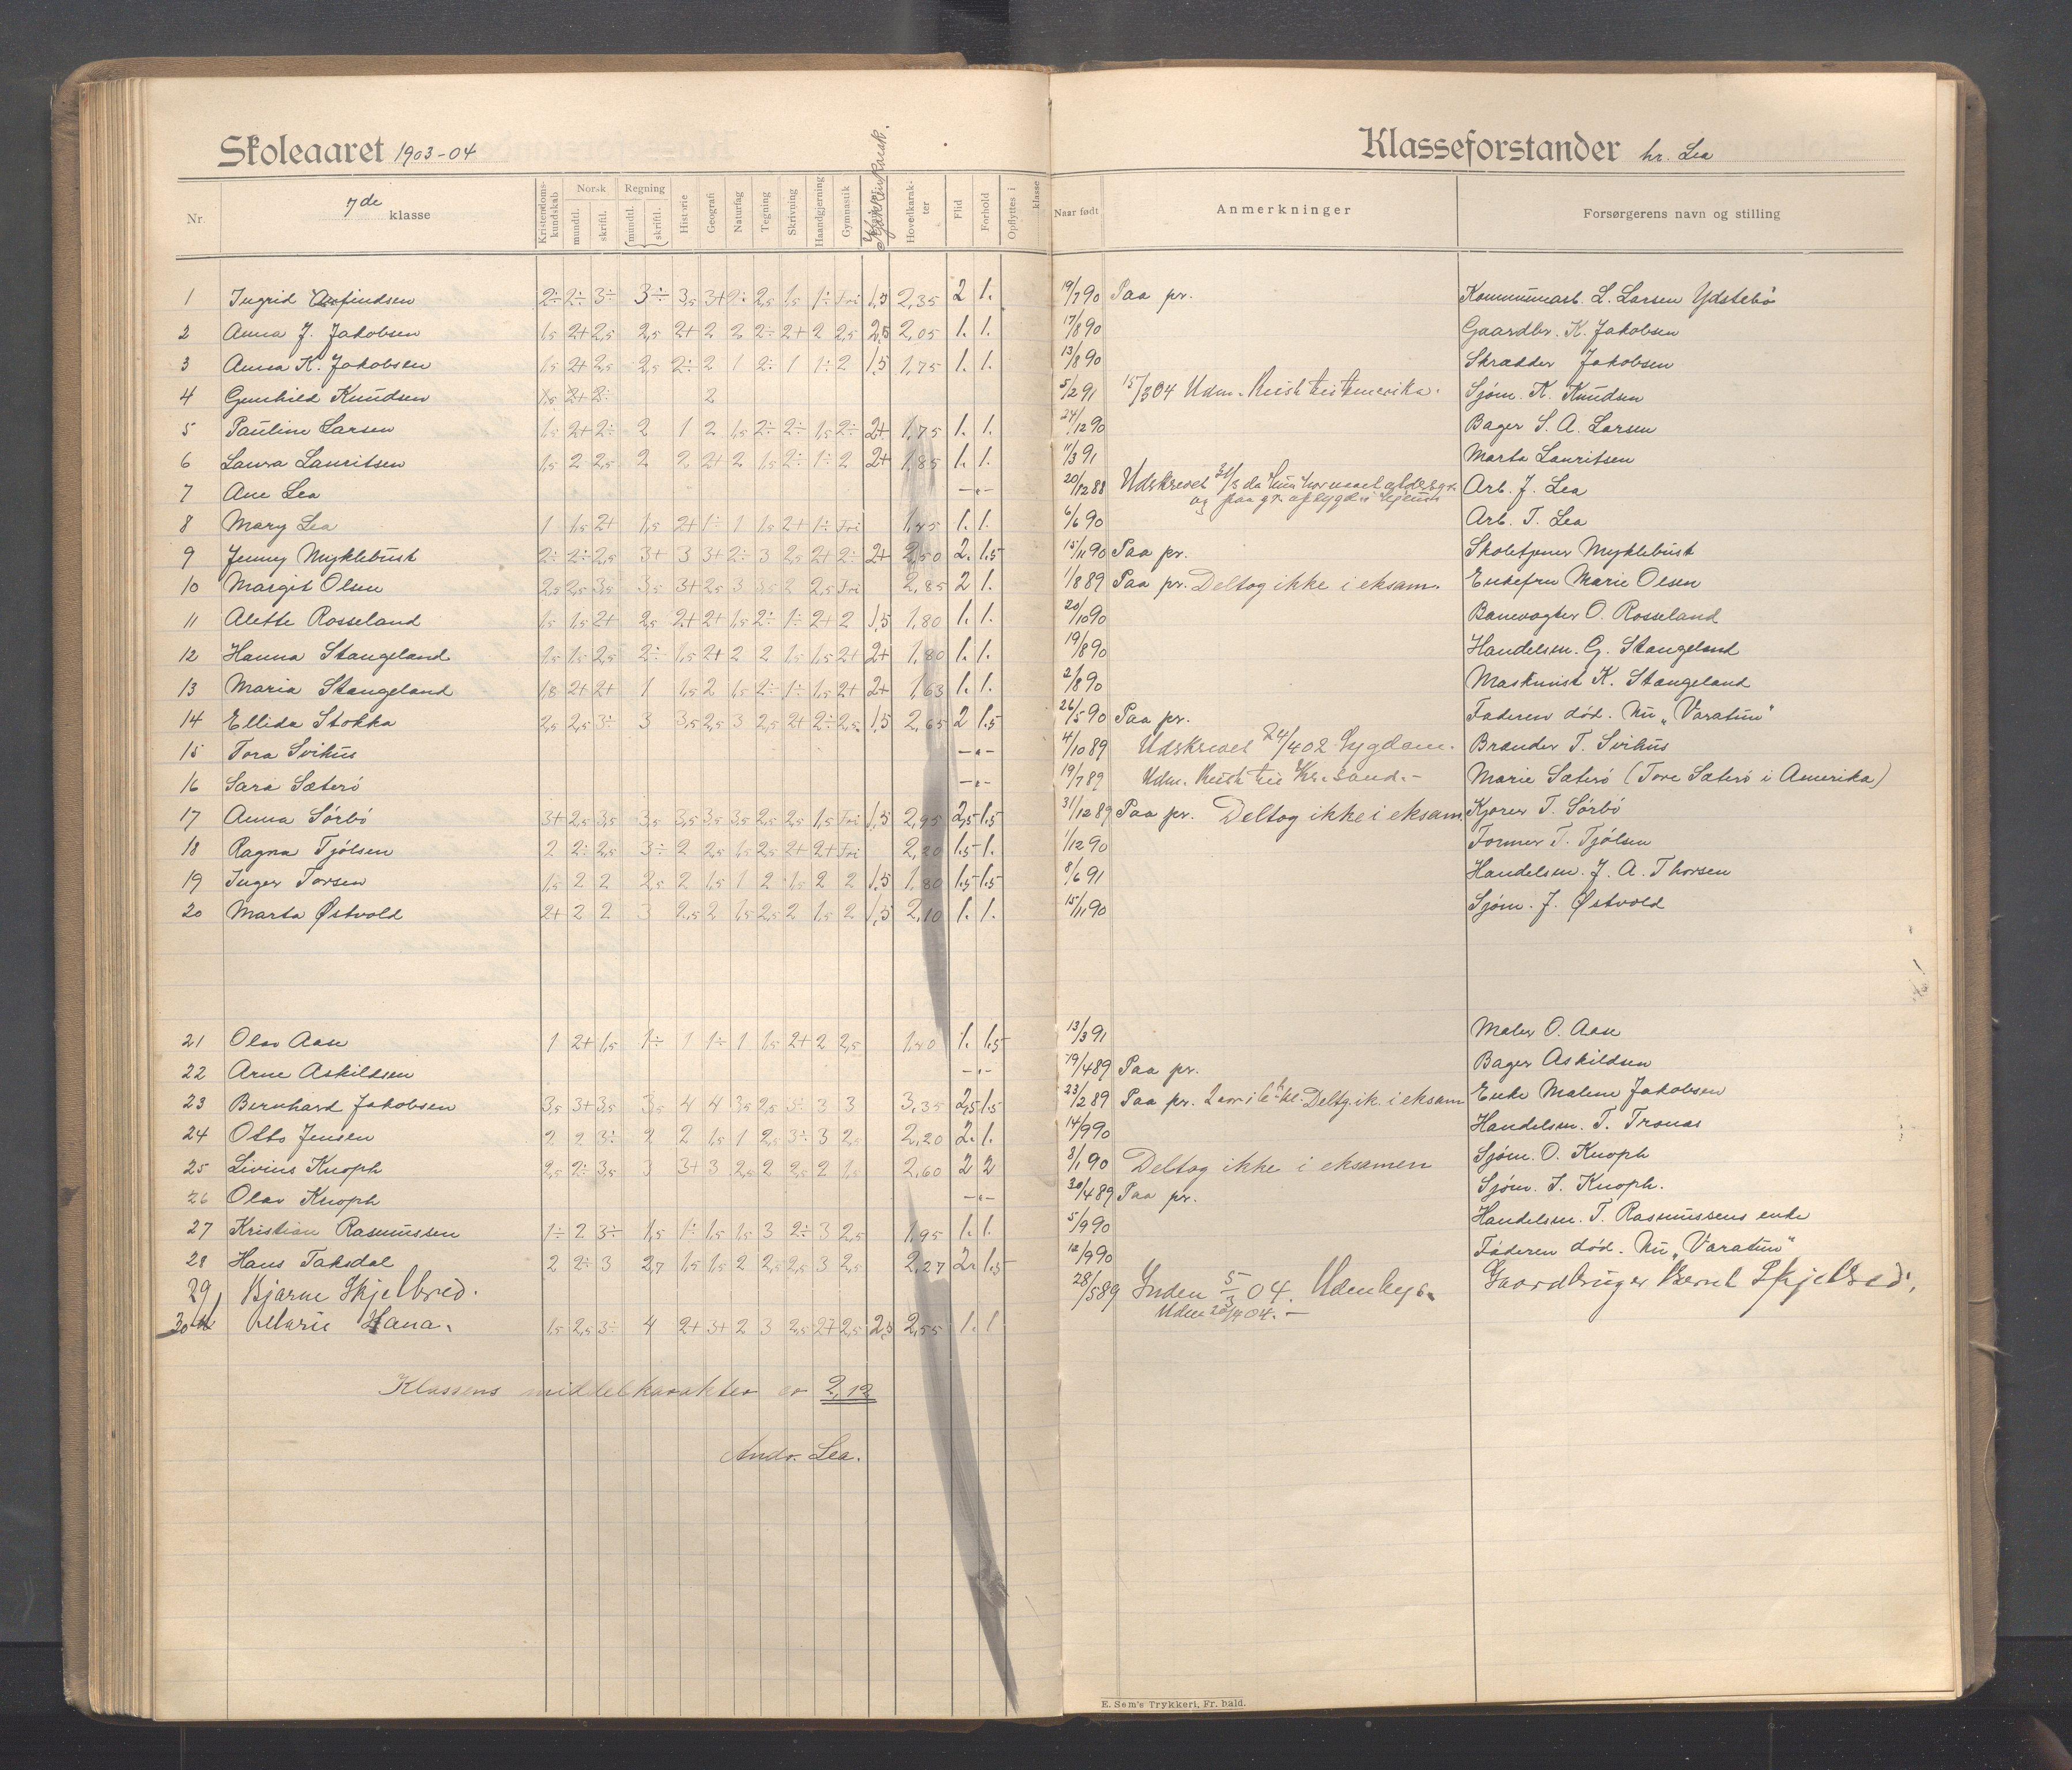 Skoleaaret 1903-04
Klasseforstander hr. Lea
Nr.
7de klasse
Kristendoms-kundskab
Norsk mundtl. skriftl.
Regning mundtl. skriftl.
Historie
Geografi
Naturfag
Tegning
Skrivning
Haandgjerning
Gymnastik
Hovedkarak-ter
Flid
Forhold
Opflyttes i klasse
Naar født
Anmerkninger
Forsørgerens navn og stilling
1 Ingrid Anfindsen 2÷ 2÷ 3÷ 3÷ 3,5 3+ 2÷ 2,5 1,5 1÷ Fri 1,5 2,35 2 1. 19/7 90 Paa pr. Kommunearb. L. Larsen Ydstebö
2 Anna J. Jakobsen 1,5 2+ 2,5 2,5 2+ 2 2 2÷ 2+ 2 2,5 2,5 2,05 1. 1. 17/8 90 Gaardbr. K. Jakobsen
3 Anna K. Jakobsen 1,5 2+ 2,5 2,5 2÷ 2 1 2÷ 1 1÷ 2 1,5 1,75 1. 1. 13/8 90 Skrædder Jakobsen
4 Gunhild Knudsen 1,5 2+ 2÷ 2 5/2 91 15/3 04 Udm. Reist til Amerika. Sjøm. K. Knudsen
5 Pauline Larsen 1,5 2+ 2÷ 2 1 2 1,5 2÷ 2÷ 1,5 2÷ 2+ 1,75 1. 1. 24/12 90 Bager S. A. Larsen
6 Laura Lauritsen 1,5 2 2,5 2 2 2+ 2 1,5 2÷ 1÷ 2 2+ 1,85 1. 1. 11/3 91 Marta Lauritsen
7 Ane Lea —"— 20/12 88 Udskrevet 31/3 da hun har naaet alders gr. Arb. J. Lea
og paa gr. af sygd. i hjemm
8 Mary Lea 1 1,5 2+ 1,5 2+ 1÷ 1 1,5 2+ 1÷ Fri 1,45 1. 1. 6/6 90 Arb. T. Lea
9 Jenny Myklebust 2÷ 2÷ 2,5 3+ 3 3+ 2÷ 3 2,5 2+ 2÷ 2+ 2,50 2. 1.5 15/11 90 Paa pr. Skoletjener Myklebust
10 Margit Olsen 2,5 2,5 3,5 3,5 3+ 2,5 3 3,5 2 2,5 Fri 2,85 2 1. 1/8 89 Paa pr. Deltog ikke i eksam. Enkefru Marie Olsen
11 Alette Rosseland 1,5 1,5 2+ 2,5 2+ 2+ 1,5 2÷ 1÷ 2+ 2 1,5 1,80 1. 1. 20/10 90 Banevogter O. Rosseland
12 Hanna Stangeland 1,5 1,5 2,5 2÷ 1,5 2+ 2 2 1,5 1,5 2+ 2+ 1,80 1. 1. 19/8 90 Handelsm. G. Stangeland
13 Maria Stangeland 1,8 2+ 2+ 1 1,5 2 1,5 2÷ 1÷ 1,5 2+ 2+ 1,63 1. 1. 2/8 90 Maskinist K. Stangeland
14 Ellida Stokka 2,5 2,5 3÷ 3 3,5 2,5 3 2,5 2+ 2÷ 2,5 1,5 2,65 2 1.5 26/5 90 Paa pr. Faderen död. Nu „Varatun"
15 Tora Svihus —"— 4/10 89 Udskrevet 24/4 02 Sygdom. Brander T. Svihus
16 Sara Sæterö —"— 19/7 89 Udm. Reist til Kr.sand.- Marie Sæterö (Tore Sæterö i Amerika)
17 Anna Sörbö 3+ 2,5 3,5 3,5 3,5 3,5 3,5 2,5 2,5 1,5 Fri 1,5 2,95 2,5 1.5 31/12 89 Paa pr. Deltog ikke i eksam. Kjører T. Sörbö
18 Ragna Tjölsen 2 2÷ 2,5 3÷ 2 2,5 1,5 2,5 2+ 2+ Fri 2,20 1.5 1. 1/12 90 Former T. Tjölsen
19 Inger Torsen 1,5 2 2 2,5 2 1,5 1 2 1,5 2 2 1,5 1,80 1.5 1.5 8/6 91 Handelsm. J. A. Thorsen
20 Marta Østvold 2+ 2 2 3 2,5 2 1,5 2,5 2 1,5 2 1,5 2,10 1. 1. 15/11 90 Sjøm. J. Østvold
21 Olav Aase 1 2+ 1,5 1÷ 1 1÷ 1 1,5 2+ 2 2,5 1,40 1. 1.5 13/3 91 Maler O. Aase
22 Arne Askildsen —"— 19/4 89 Paa pr. Bager Askildsen
23 Bernhard Jakobsen 3,5 3+ 3,5 3,5 4 4 3,5 2,5 3÷ 3 3 3,35 2,5 1.5 23/2 89 Paa pr. 2 aar i 6te kl. Deltg ik. i eksam Enke Malene Jakobsen
24 Otto Jensen 2 2 3÷ 2 2 1,5 1 2,5 3÷ 3 2,5 2,20 2. 1. 14/9 90 Handelsm. T. Tronas
25 Livius Knoph 2,5 2÷ 3,5 3 3+ 3 2,5 2 2,5 2 1,5 2,60 2 2 3/1 90 Deltog ikke i eksamen Sjøm. O. Knoph
26 Olav Knoph —"— 30/4 89 Paa pr. Sjøm. I. Knoph.
27 Kristian Rasmussen 1÷ 2 3÷ 1,5 1÷ 1,5 1,5 3 2÷ 3 2,5 1,95 1. 1. 5/9 90 Handelsm. T. Rasmussens enke
28 Hans Taksdal 2 2÷ 3 2,7 1,5 1,5 2 2,5 2,5 3 2,5 2,27 2. 1.5 12/9 90 Faderen död. Nu „Varatun"
29 Bjarne Skjelbred. 28/5 89 Inden 5/3 04. Udenbys. Gaardbruger Bernt Skjelbred.
Udm 20/4 04. —
30 Marie Hana. 1,5 2,5 3÷ 4 2+ 3+ 2 3 2,5 2+ 2,5 2,5 2,55 1. 1
Klassens middelkarakter er 2,12
Andr. Lea.
E. Sem's Trykkeri, Fr. hald.